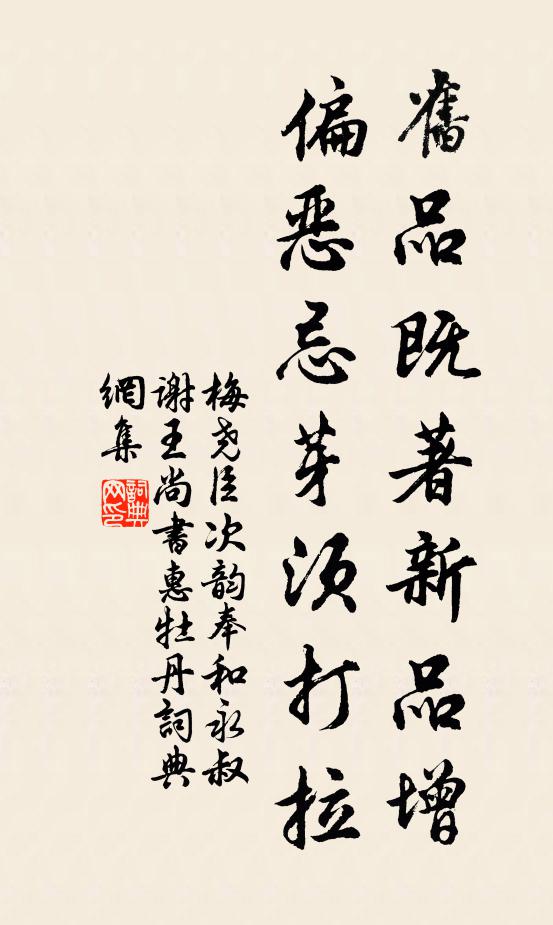 舊品既著新品增
偏惡忌芽須打拉
梅堯臣次韵奉和永叔
謝王尚書惠牡丹詞典
網集
詞典網印